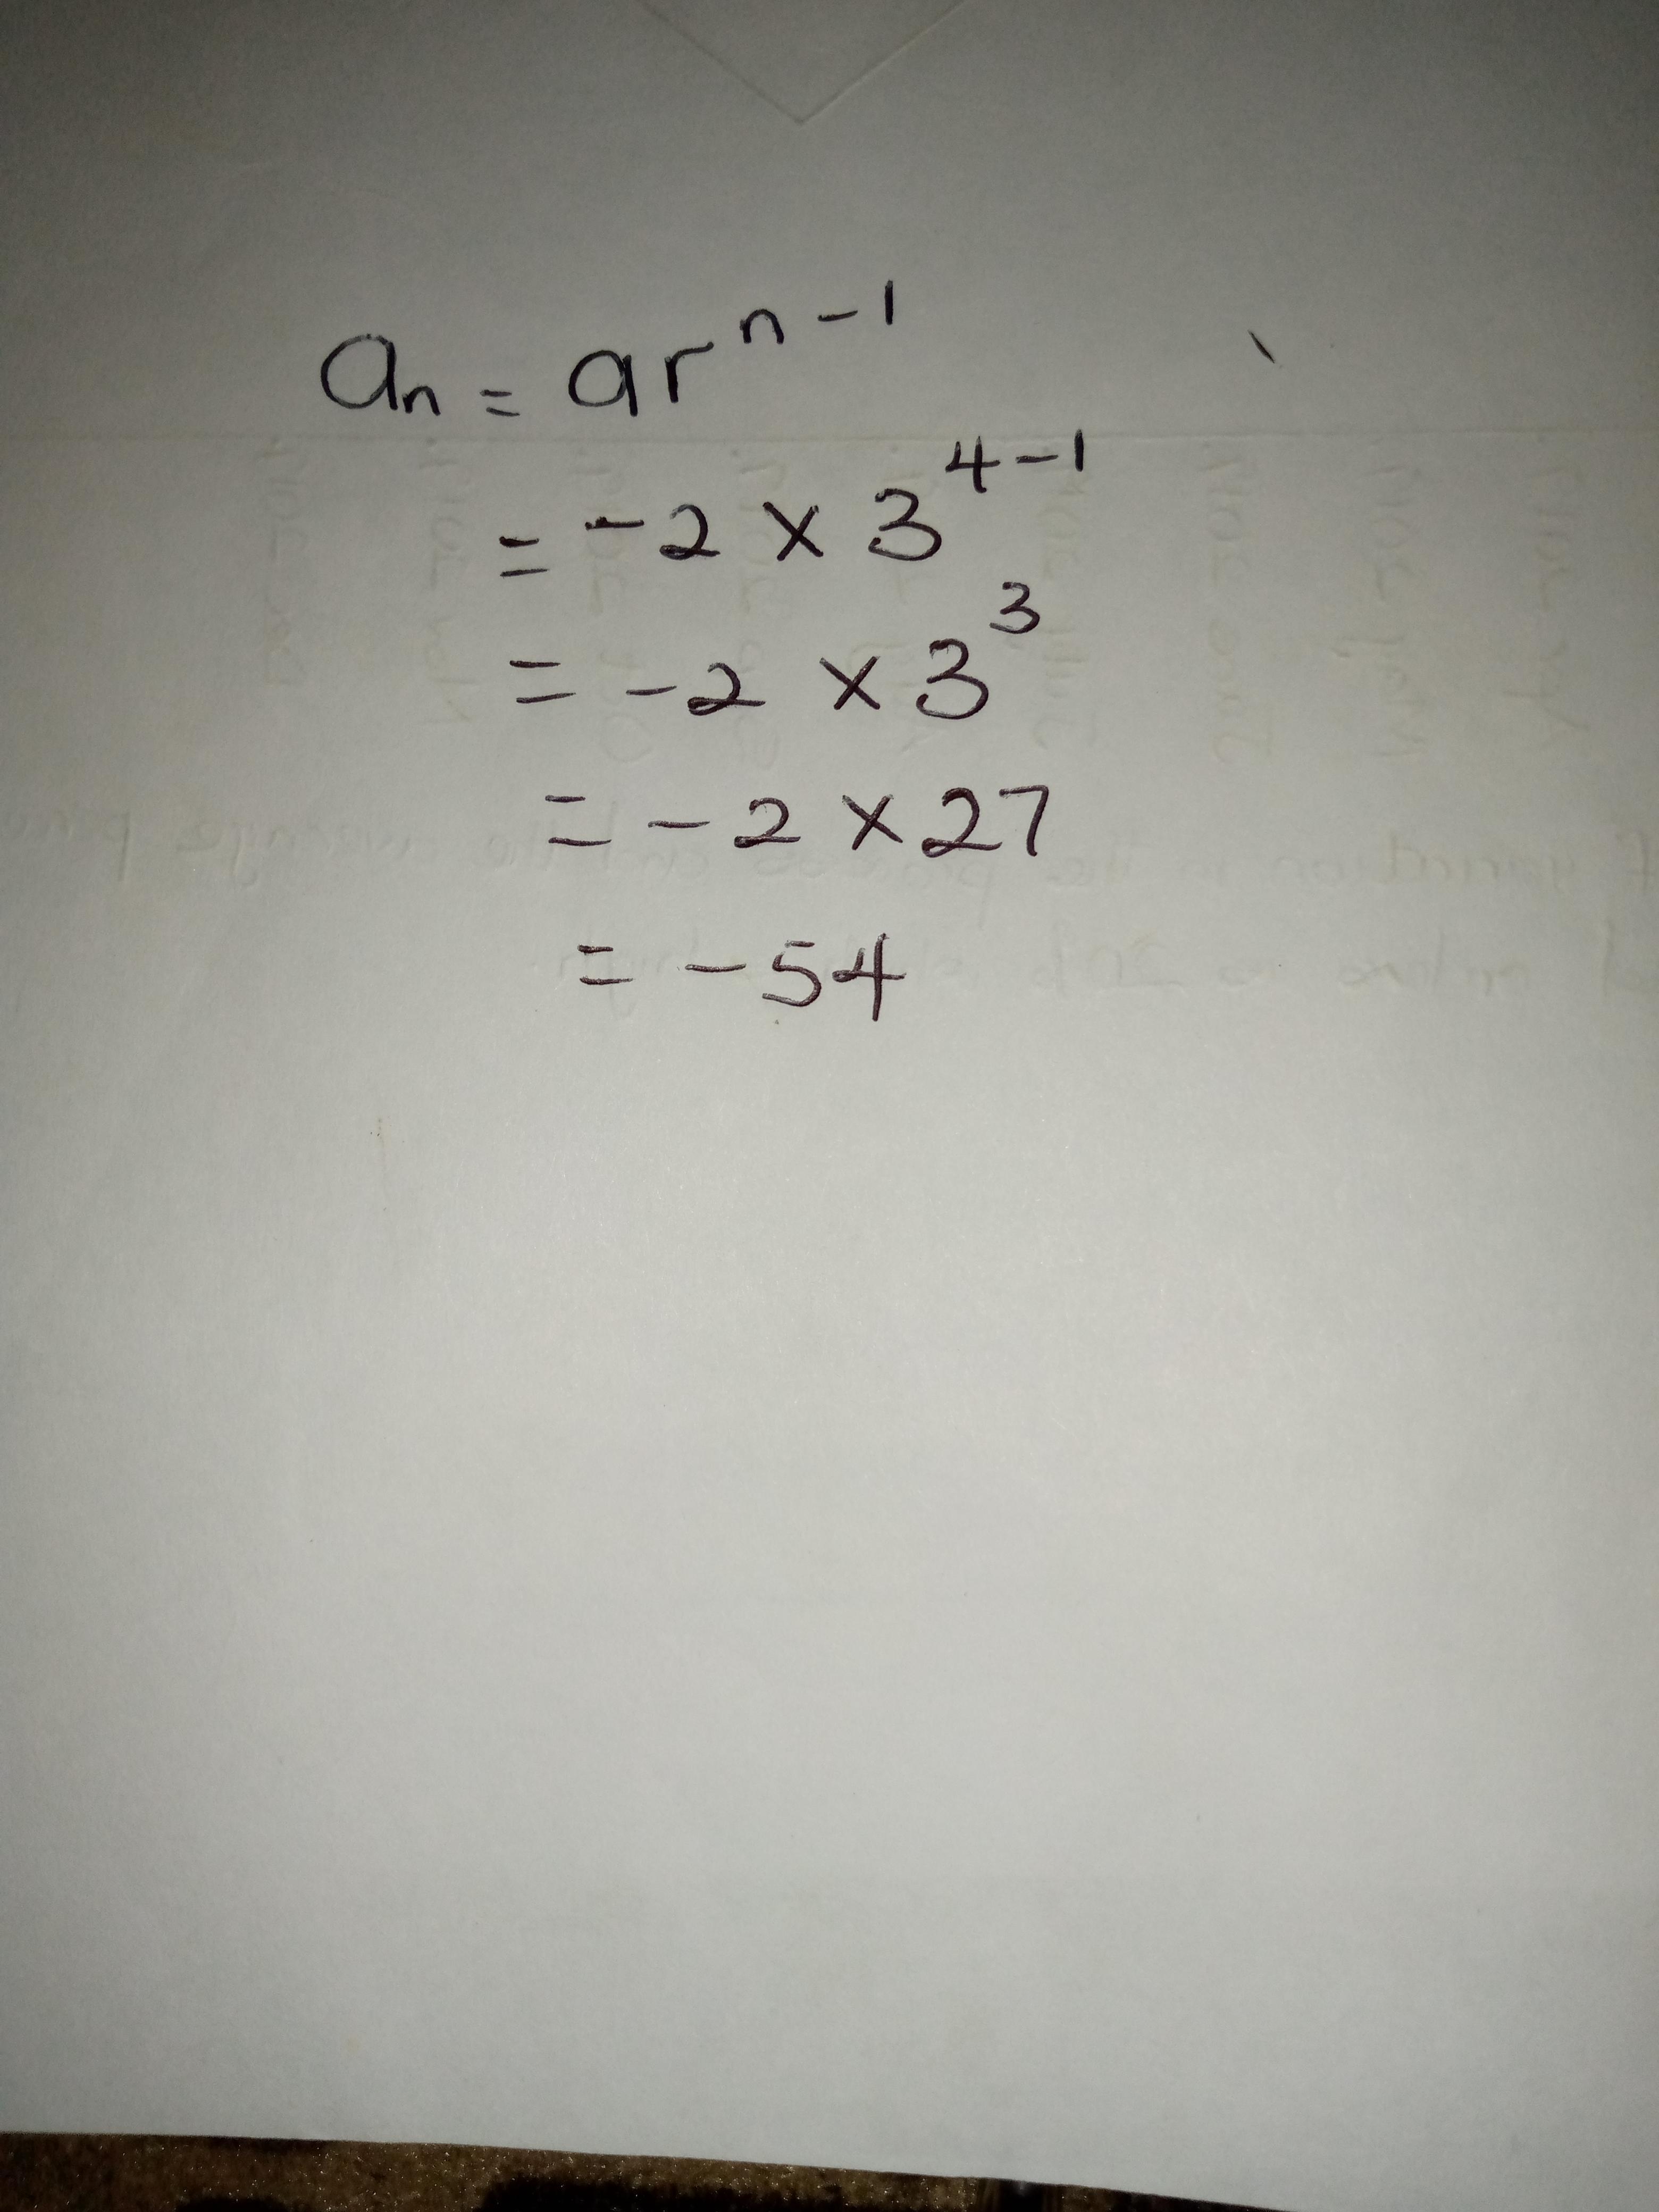 aₙ = arⁿ⁻¹
= -2 × 3⁴⁻¹
= -2 × 3³
= -2 × 27
= -54